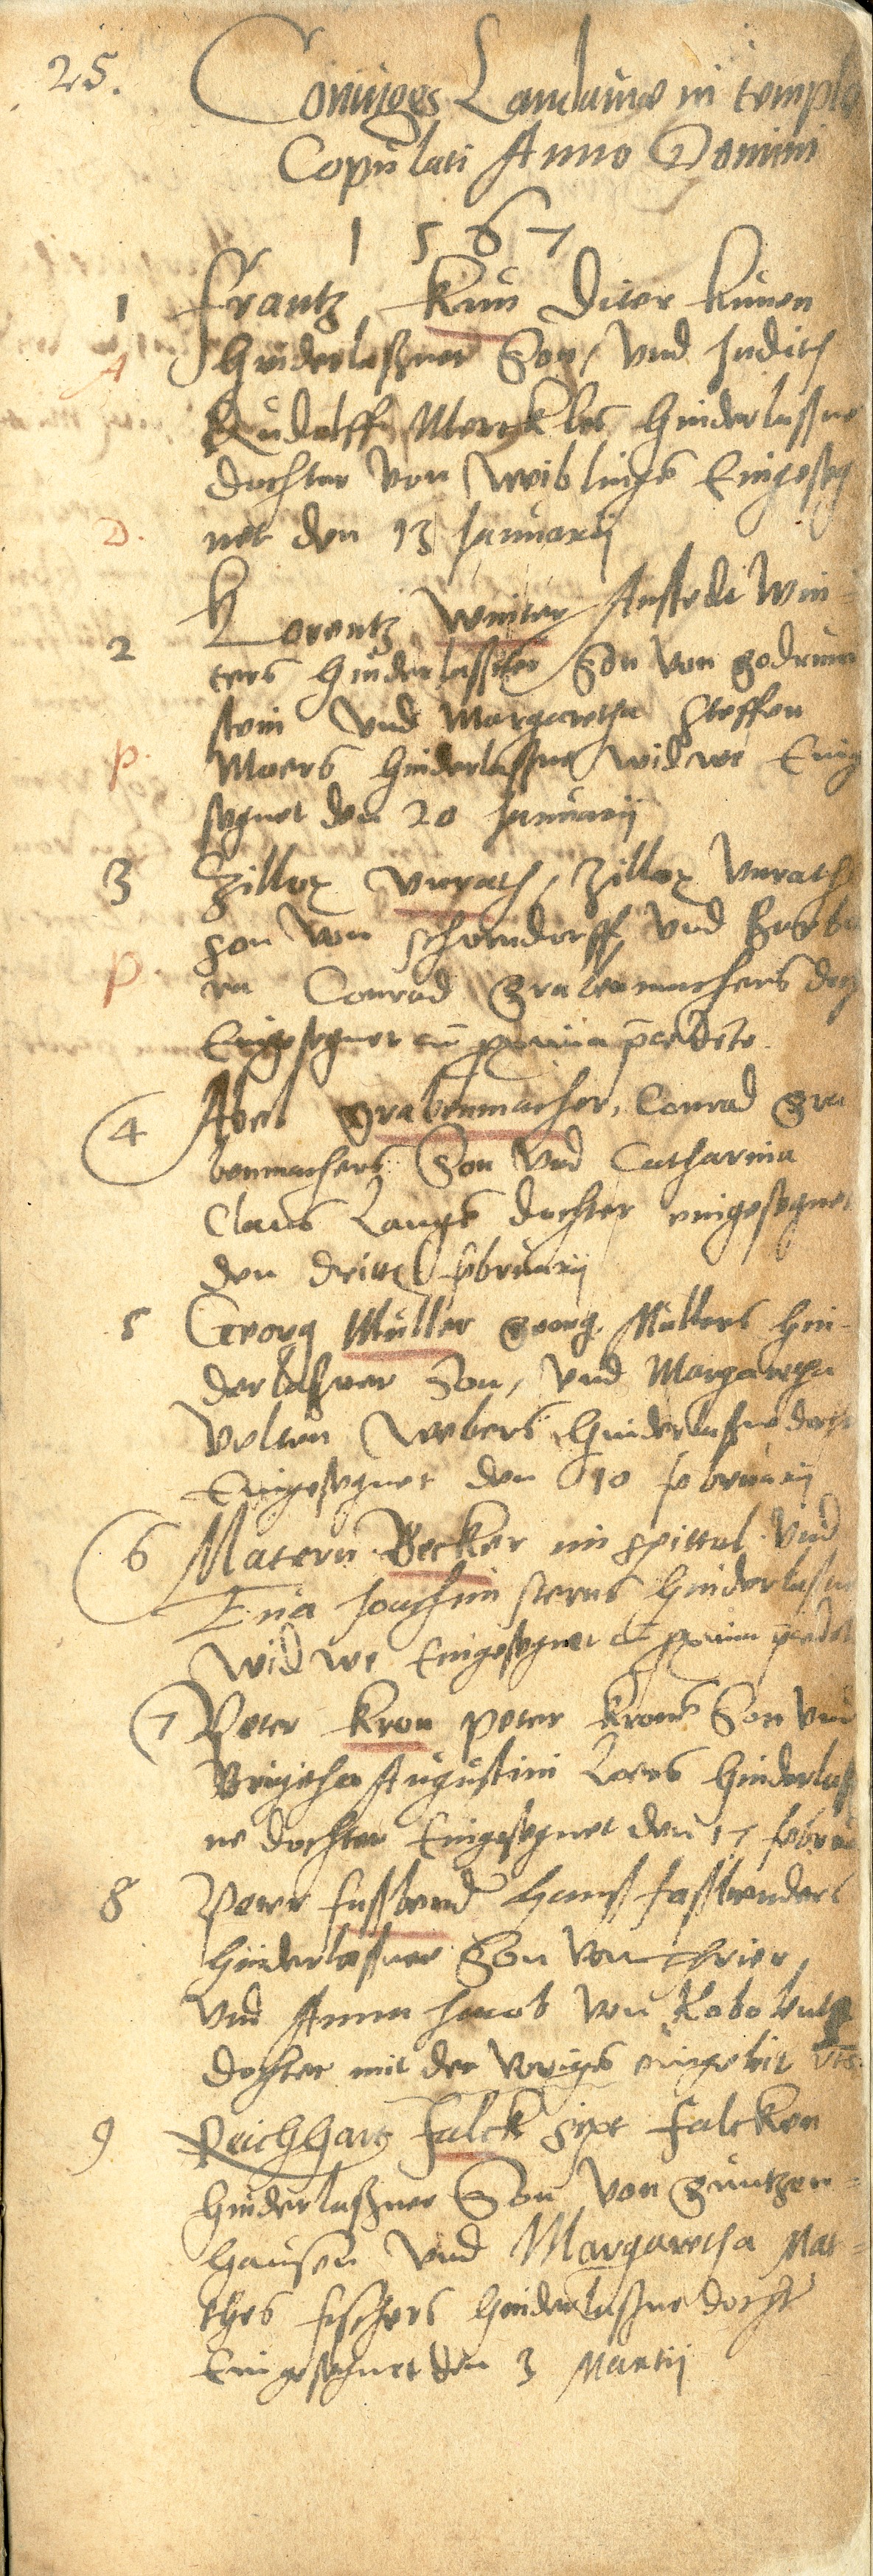 25.
Coniuges Landauiæ in templo
Copulati Anno Domini
1567
1 Frantz Kun Diter Kunen
A hinderlaßner Son, vnd Judith
Rudolff Merckles hinderlaßne
dochter von Wiblinge Eingeseg
D. net den 13 Januarij
2 Lorentz Winter Anstedt Win-
ters hinderlaßner Son von godram
stein vnd Margaretha Steffen
p. Moers hinderlaßne widwe Einge
segnet den 20 Januarij
3 Zillox vnrath, Zillox vnraths
son von schorndorff vnd Barba
p. ra Conrad Grabenmachers doch
Eingesegnet
4 Abel grabenmacher, Conrad gra
benmachers Son vnd Catharina
Claus Langs dochter eingesegnet
den dritten februarij
5 Georg Müller georg Müllers hin-
derlaßner Son, vnd Margaretha
Velten Webers hinderlaßne docht
Eingesegnet den 10 februarij
6 Matern Becker im spittal vnd
Eua Joachim sterns hinderlaßne
widwe Eingesegnet
7 Peter Kron peter Krons Son vnd
Augustini hinderlaß
ne dochter Eingesegnet den 17 februa
8 Peter faßbend hanß faßbenders
hinderlaßner Son von thrier,
vnd Anna Jacob von
dochter mit der
9 Reichhart Falck sixt Falcken
hinderlaßner Son von guntzen-
hausen vnd Margaretha Mat-
thes fischers hinderlaßne docht
Eingesegnet den 3 Martij